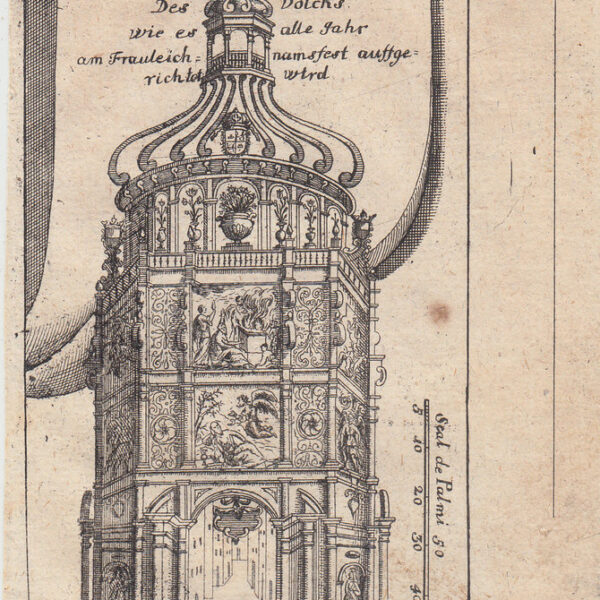 Des Volcks.
wie es alle Jahr
am Frauleich= namsfest auffge=
richtet wird
Scal de Palmi 50
5 10 20 30 40